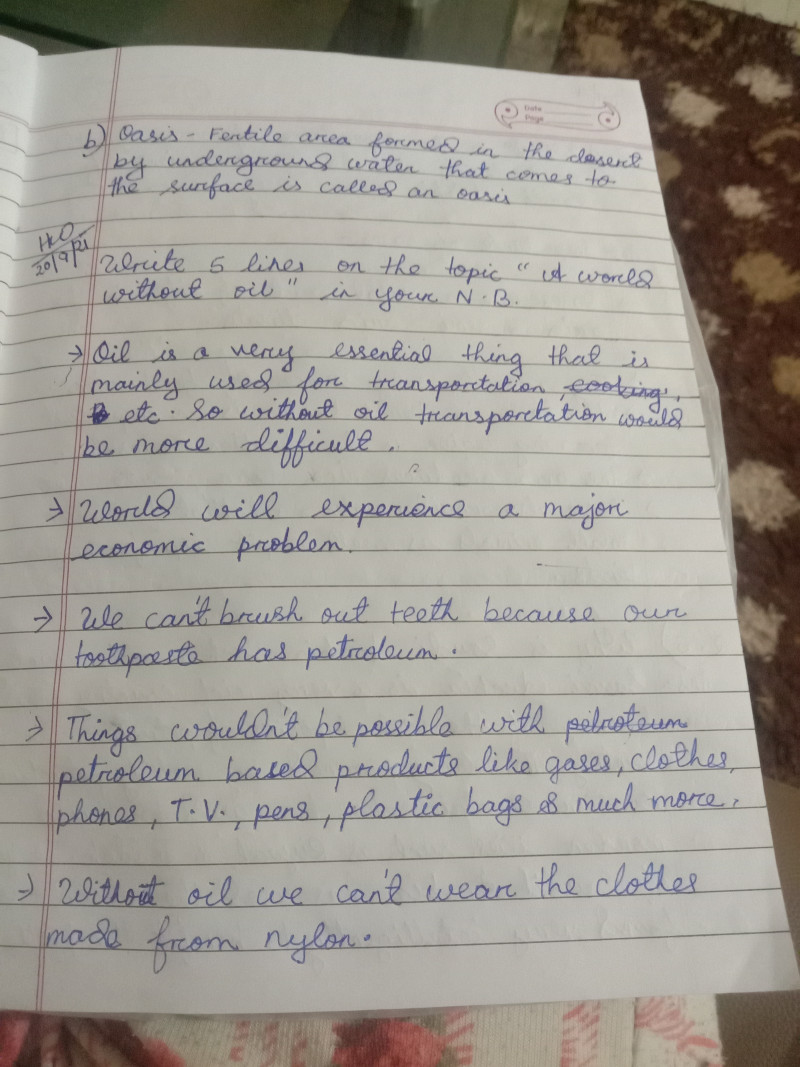 Date
Page
b) Oasis - Fertile area formed in the desert
by underground water that comes to
the surface is called an oasis
H.W
20/9/21
Write 5 lines on the topic "A world
without oil" in your N.B.
→ Oil is a very essential thing that is
mainly used for transportation, cooking,
etc. So without oil transportation would
be more difficult.
→ World will experience a major
economic problem.
→ We can't brush out teeth because our
toothpaste has petroleum.
→ Things wouldn't be possible with petroleum
petroleum based products like gases, clothes,
phones, T.V., pens, plastic bags & much more.
→ Without oil we can't wear the clothes
made from nylon.